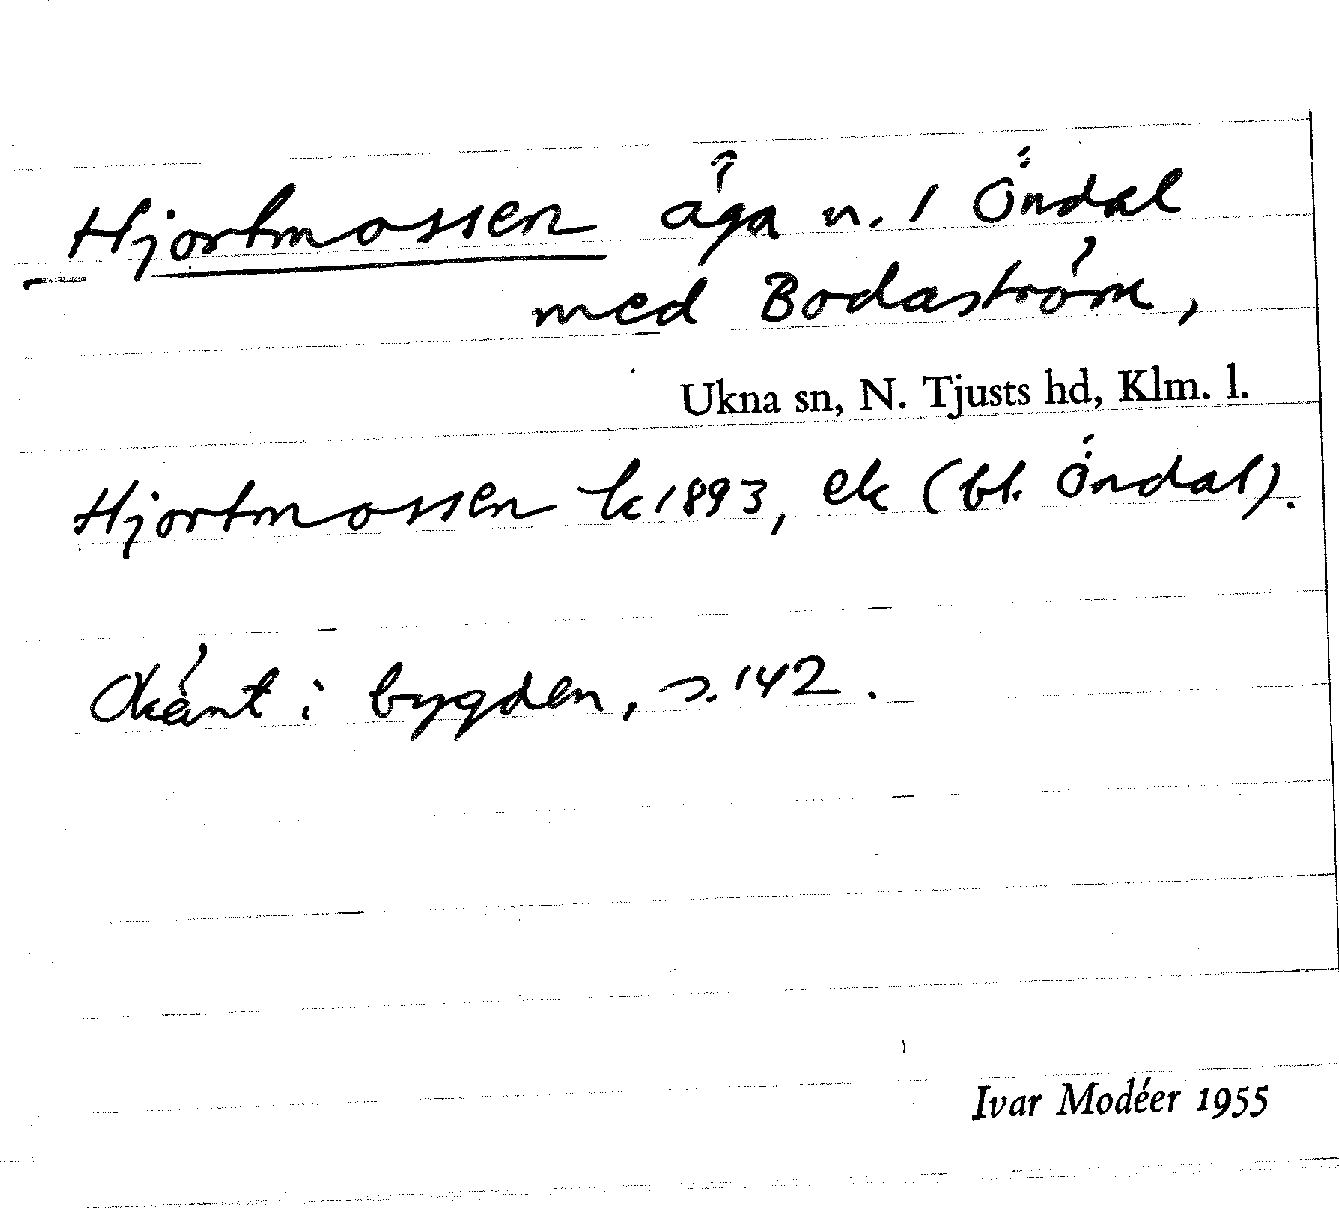 Hjortmossen äga n. 1 Öndal
med Bodaström,
Ukna sn, N. Tjusts hd, Klm. l.
Hjortmossen k 1893, ek (bl. Öndal).
Okänt i bygden, s. 142.
Ivar Modéer 1955